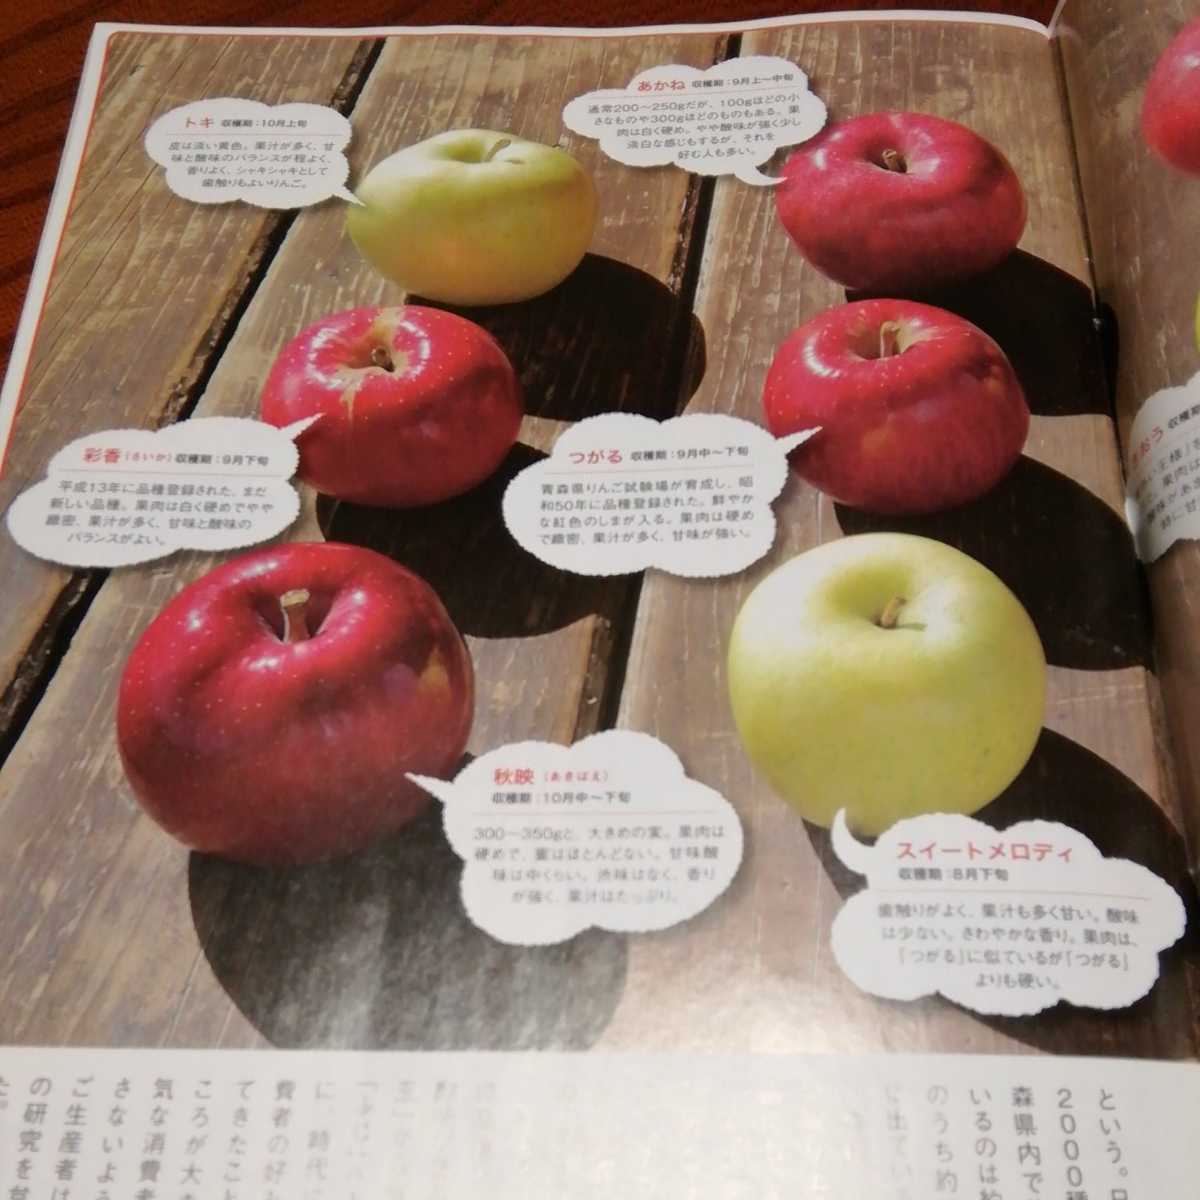 トキ 収穫期：10月上旬
皮は淡い黄色。果汁が多く、甘
味と酸味のバランスが程よく、
香りよく、シャキシャキとして
歯触りもよいりんご。
あかね 収穫期：9月上〜中旬
通常200〜250gだが、100gほどの小
さなものや300gほどのものもある。果
肉は白く硬め。やや酸味が強く少し
淡白な感じもするが、それを
好む人も多い。
彩香（さいか）収穫期：9月下旬
平成13年に品種登録された、まだ
新しい品種。果肉は白く硬めでやや
緻密、果汁が多く、甘味と酸味の
バランスがよい。
つがる 収穫期：9月中〜下旬
青森県りんご試験場が育成し、昭
和50年に品種登録された。鮮やか
な紅色のしまが入る。果肉は硬め
で緻密、果汁が多く、甘味が強い。
秋映（あきばえ）
収穫期：10月中〜下旬
300〜350gと、大きめの実。果肉は
硬めで、蜜はほとんどない。甘味酸
味は中くらい。渋味はなく、香り
が強く、果汁はたっぷり。
スイートメロディ
収穫期：8月下旬
歯触りがよく、果汁も多く甘い。酸味
は少ない。さわやかな香り。果肉は、
「つがる」に似ているが「つがる」
よりも硬い。
おう 収穫期
い王様」
果肉は
酸味があ
特に甘
という。
2000種
森県内で
いるのは約
のうち約
に出てい
に、時代
費者の好
てきたこと
ころが大
気な消費者
さないよう
ご生産者は
の研究を
た。